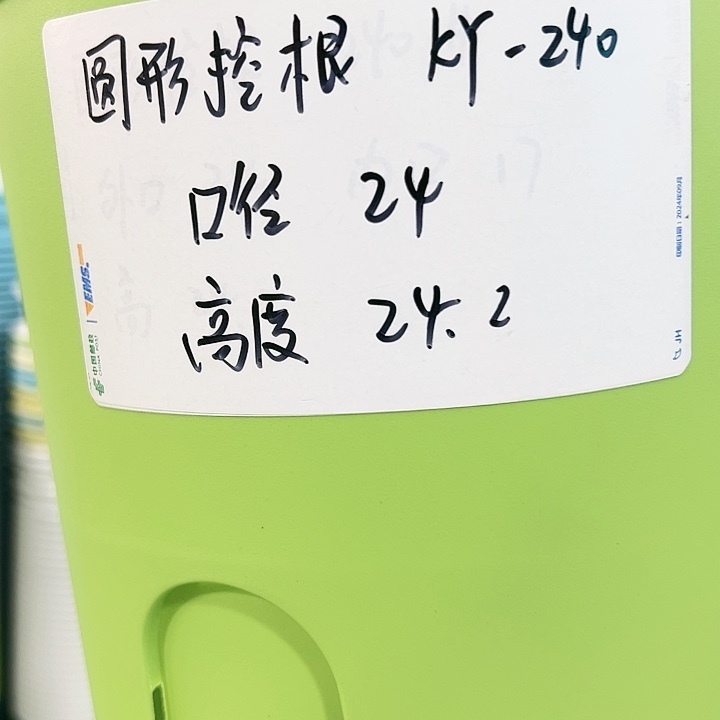 圆形控根 KY-240
口径 24
高度 24.2
EMS
中国邮政
CHINA POST
印刷日期：2024年09月
JH